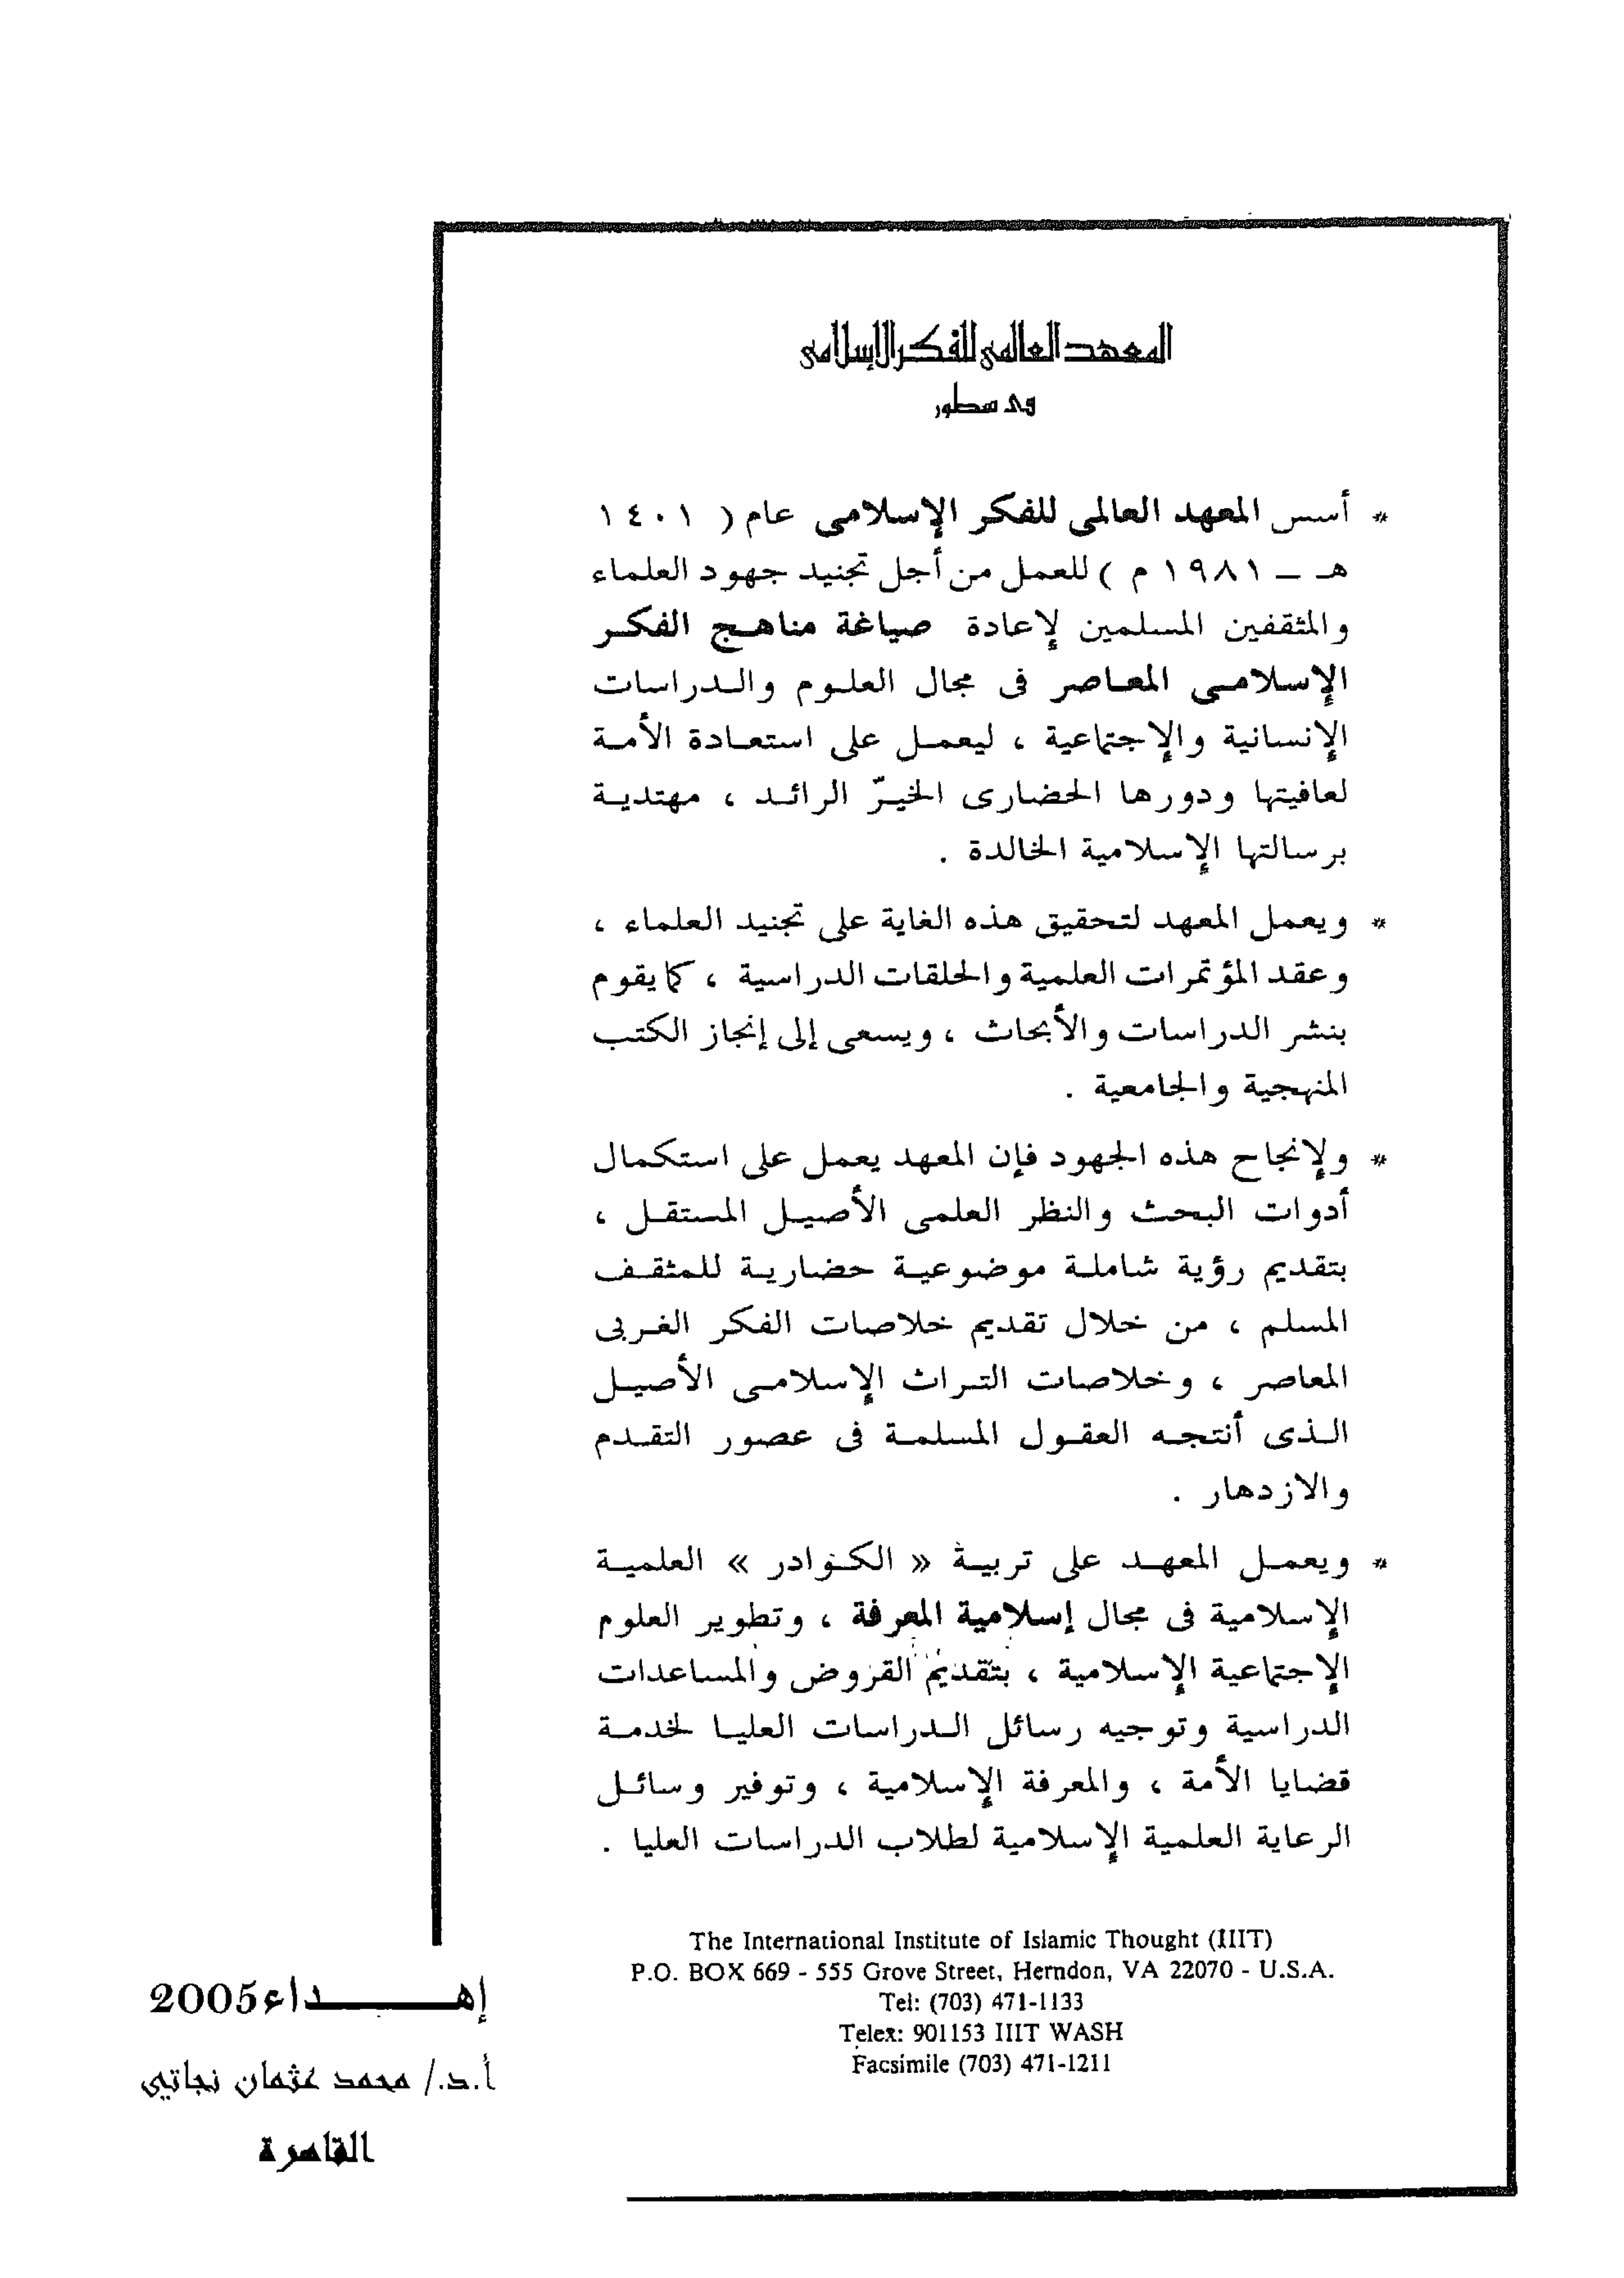 المعهد العالمى للفكر الإسلامى
فى سطور
* أسس المعهد العالمى للفكر الإسلامى عام ( ١٤٠١
هـ – ١٩٨١ م ) للعمل من أجل تجنيد جهود العلماء
والمثقفين المسلمين لإعادة صياغة مناهـج الفكـر
الإسلامـى المعـاصر فى مجال العلـوم والـدراسات
الإنسانية والإجتماعية ، ليعمـل على استعـادة الأمـة
لعافيتها ودورها الحضارى الخيـّر الرائـد ، مهتديـة
برسالتها الإسلامية الخالدة .
* ويعمل المعهد لتحقيق هذه الغاية على تجنيد العلماء ،
وعقد المؤتمرات العلمية والحلقات الدراسية ، كما يقوم
بنشر الدراسات والأبحاث ، ويسعى إلى إنجاز الكتب
المنهجية والجامعية .
* ولإنجاح هذه الجهود فإن المعهد يعمل على استكمال
أدوات البحث والنظر العلمى الأصيـل المستقـل ،
بتقديم رؤية شاملـة موضوعيـة حضاريـة للمثقـف
المسلم ، من خلال تقديم خلاصات الفكر الغـربى
المعاصر ، وخلاصات التـراث الإسلامـى الأصيـل
الـذى أنتجـه العقـول المسلمـة فى عصور التقـدم
والازدهار .
* ويعمـل المعهـد على تربيـة « الكـوادر » العلميـة
الإسلامية فى مجال إسلامية المعرفة ، وتطوير العلوم
الإجتماعية الإسلامية ، بتقديم القروض والمساعدات
الدراسية وتوجيه رسائل الـدراسات العليـا لخدمـة
قضايا الأمة ، والمعرفة الإسلامية ، وتوفير وسائـل
الرعاية العلمية الإسلامية لطلاب الدراسات العليا .
The International Institute of Islamic Thought (IIIT)
P.O. BOX 669 - 555 Grove Street, Herndon, VA 22070 - U.S.A.
Tel: (703) 471-1133
Telex: 901153 IIIT WASH
Facsimile (703) 471-1211
إهـــــــداء 2005
أ.د./ محمد عثمان نجاتي
القاهرة